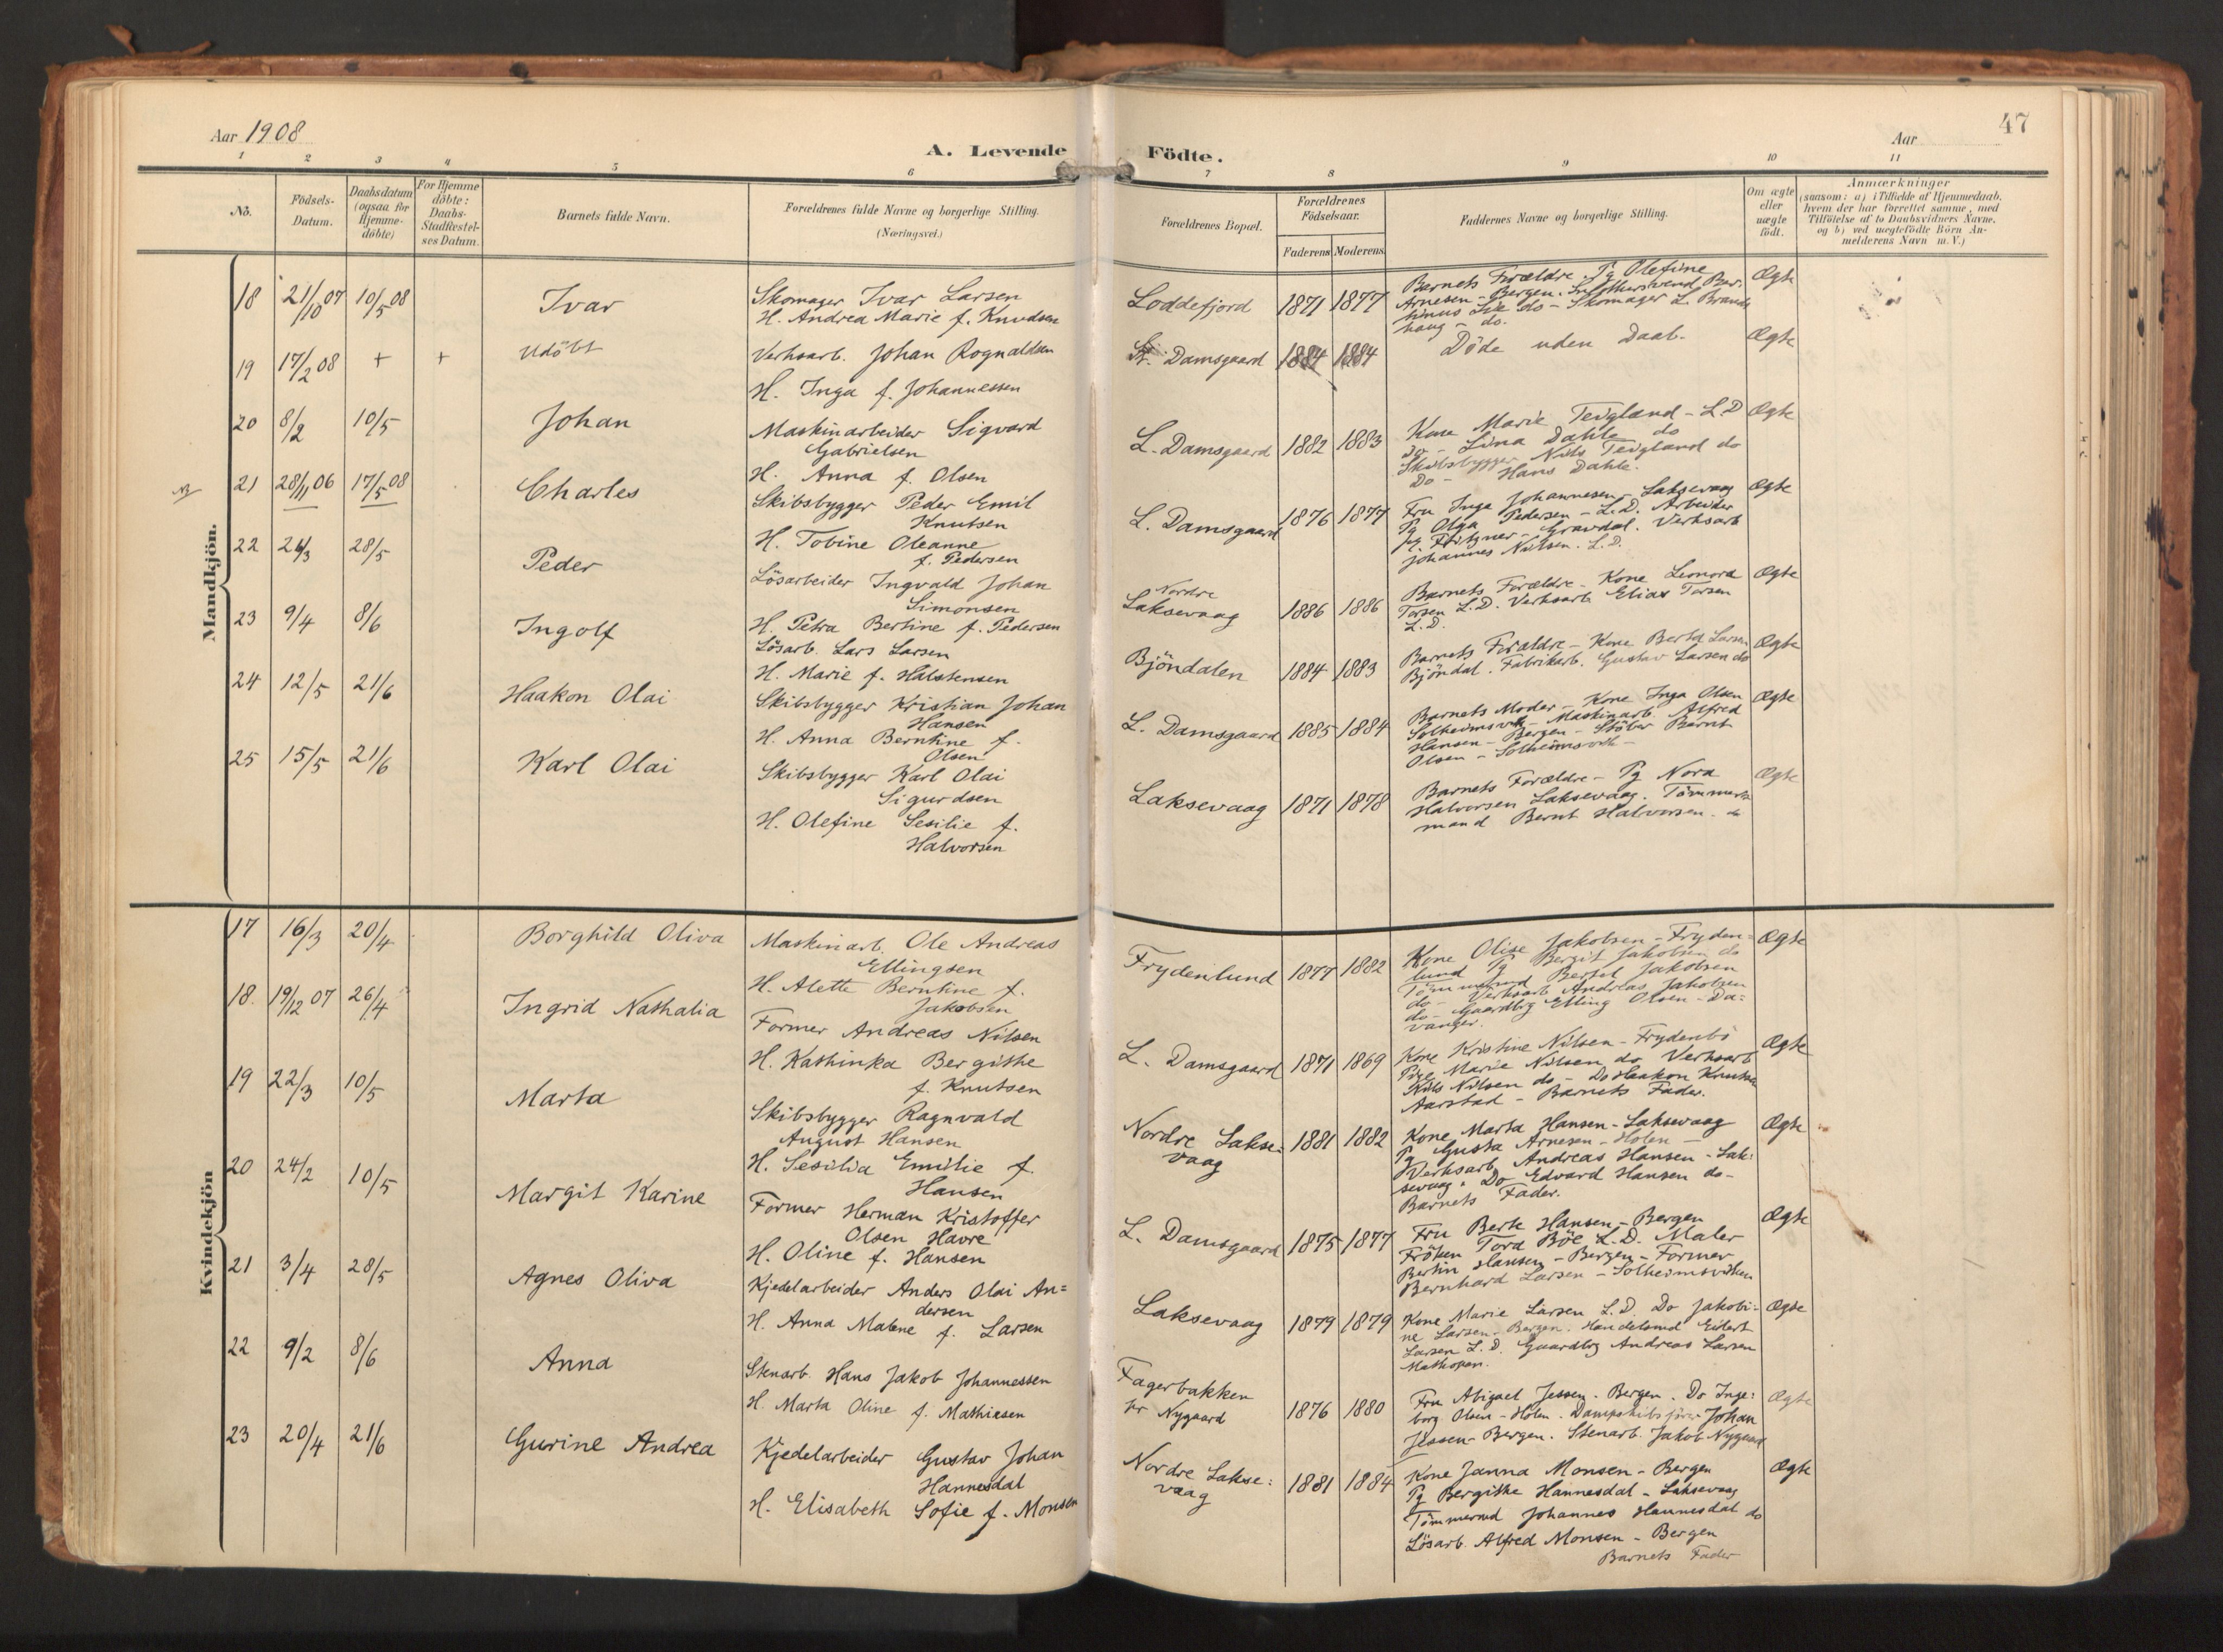 Aar 1908
A. Levende Födte.
Aar
47
1 2 3 4 5 6 7 8 9 10 11
No.
Födsels-Datum.
Daabsdatum (ogsaa for Hjemme-döbte)
For Hjemme döbte: Daabs-Stadfæstel-ses Datum.
Barnets fulde Navn.
Forældrenes fulde Navne og borgerlige Stilling.
(Næringsvei.)
Forældrenes Bopæl.
Forældrenes Födselsaar.
Faderens Moderens
Faddernes Navne og borgerlige Stilling.
Om ægte eller uægte födt.
Anmærkninger
(saasom: a) i Tilfælde af Hjemmedaab,
hvem der har forrettet samme, med
Tilföielse af to Daabsvidners Navne,
og b) ved uægtefödte Börn An-
melderens Navn m. V.)
Mandkjön.
18 21/10 07 10/5 08 Ivar
Skomager Ivar Larsen
H. Andrea Marie f. Knudsen
Loddefjord 1871 1877
Barnets Forældre. Pg Olefine
Arnesen - Bergen.
do - Skomager L. Brands
haug - do.
Ægte
19 17/2 08 + + Udöbt
Verksarb. Johan Rognaldsen
H. Inga f. Johannessen
St. Damsgaard 1884 1884
Döde uden Daab.
Ægte
20 8/2 10/5 Johan
Maskinarbeider Sigvard
Gabrielsen
H. Anna f. Olsen
L. Damsgaard 1882 1883
Kone Marie Teigland - L.D
Do - Lina Dahle do
Skibsbygger Nils Teigland do
Do - Hans Dahle.
Ægte
21 28/11 06 17/5 08 Charles
Skibsbygger Peder Emil
Knutsen
H. Tobine Oleanne
f. Pedersen
L. Damsgaard 1876 1877
Fru Inga Johannesen - Laksevaag
Pg Olga Pedersen - L.D. Arbeider
Fritzner - Gravdal. Verksarb
Johannes Nilsen. L.D.
Ægte
22 26/3 28/5 Peder
Lösarbeider Ingvald Johan
Simonsen
H. Petra Bertine f. Pedersen
Nordre
Laksevaag 1886 1886
Barnets Forældre - Kone Leonora
Torsen L.D. Verksarb Elias Torsen
L.D.
Ægte
23 9/4 8/6 Ingolf
Lösarb. Lars Larsen
H. Marie f. Halstensen
Bjöndalen 1884 1883
Barnets Forældre - Kone Berta Larsen
Bjöndal. Fabrikarb. Gustav Larsen do
Ægte
24 12/5 21/6 Haakon Olai
Skibsbygger Kristian Johan
Hansen
H. Anna Berntine f.
Olsen
L. Damsgaard 1885 1884
Barnets Moder - Kone Inga Olsen
Solheimsvik - Maskinarb. Alfred
Hansen - Bergen - Stöber Bernt
Olsen - Solheimsvik -
Ægte
25 15/5 21/6 Karl Olai
Skibsbygger Karl Olai
Sigurdsen
H. Olefine Sesilie f.
Halvorsen
Laksevaag 1871 1878
Barnets Forældre - Pg Nora
Halvorsen Laksevaag. Tömmer
mand Bernt Halvorsen. do
Ægte
Kvindekjön
17 16/3 20/4 Borghild Oliva
Maskinarb. Ole Andreas
Ellingsen
H. Alette Berntine f.
Jakobsen
Frydenlund 1877 1882
Kone Olise Jakobsen - Fryden=
lund Pg Bergit Jakobsen do
Tömmermd Bertel Jakobsen
do - Verksarb Andreas Jakobsen
do - Gaardbrg Elling Olsen - Da=
vanger.
Ægte
18. 19/12 07 26/4 Ingrid Nathalia
Former Andreas Nilsen
H. Kathinka Bergithe
f. Knutsen
L. Damsgaard 1871 1869
Kone Kristine Nilsen - Frydenbö
Pige Marie Nilsen do Verksarb
Nils Nilsen do - Do Haakon Knutsen
Aarstad - Barnets Fader.
Ægte
19 22/3 10/5 Marta
Skibsbygger Ragnvald
August Hansen
H. Sesilia Emilie f.
Hansen
Nordre Lakse=
vaag 1881 1882
Kone Marta Hansen - Laksevaag
Pg Gusta Arnesen - Holen -
Verksarb Andreas Hansen - Lak=
sevaag. Do Edvard Hansen do -
Barnets Fader.
Ægte
20 24/2 10/5 Margit Karine
Former Herman Kristoffer
Olsen Havre
H. Oline f. Hansen
L. Damsgaard 1875 1877
Fru Berte Hansen - Bergen
Fröken Tora Böe L.D. Maler
Bertin Hansen - Bergen - Former
Bernhard Larsen - Solheimsviken
Ægte
21 3/4 28/5 Agnes Oliva
Kjedelarbeider Anders Olai An=
dersen
H. Anna Malene f. Larsen
Laksevaag 1879 1879
Kone Marie Larsen L.D. Do Jakobi=
ne Larsen - Bergen. Handelsmd Eilert
Larsen L.D. Gaardbrg Andreas Larsen
Mathopen.
Ægte
22 9/2 8/6 Anna
Stenarb. Hans Jakob Johannessen
H. Marta Oline f. Mathiesen
Fagerbakken
pr Nygaard 1876 1880
Fru Abigael Jessen. Bergen. Do Inge=
borg Olsen - Holen. Dampskibsförer Johan
Jessen - Bergen. Stenarb. Jakob Nygaard
Ægte
23 20/4 21/6 Gurine Andrea
Kjedelarbeider Gustav Johan
Hannesdal
H. Elisabeth Sofie f. Monsen
Nordre Lakse=
vaag 1881 1884
Kone Janna Monsen - Bergen
Pg Bergithe Hannesdal - Laksevaag
Tömmermd Johannes Hannesdal do
Lösarb. Alfred Monsen - Bergen
Barnets Fader
Ægte